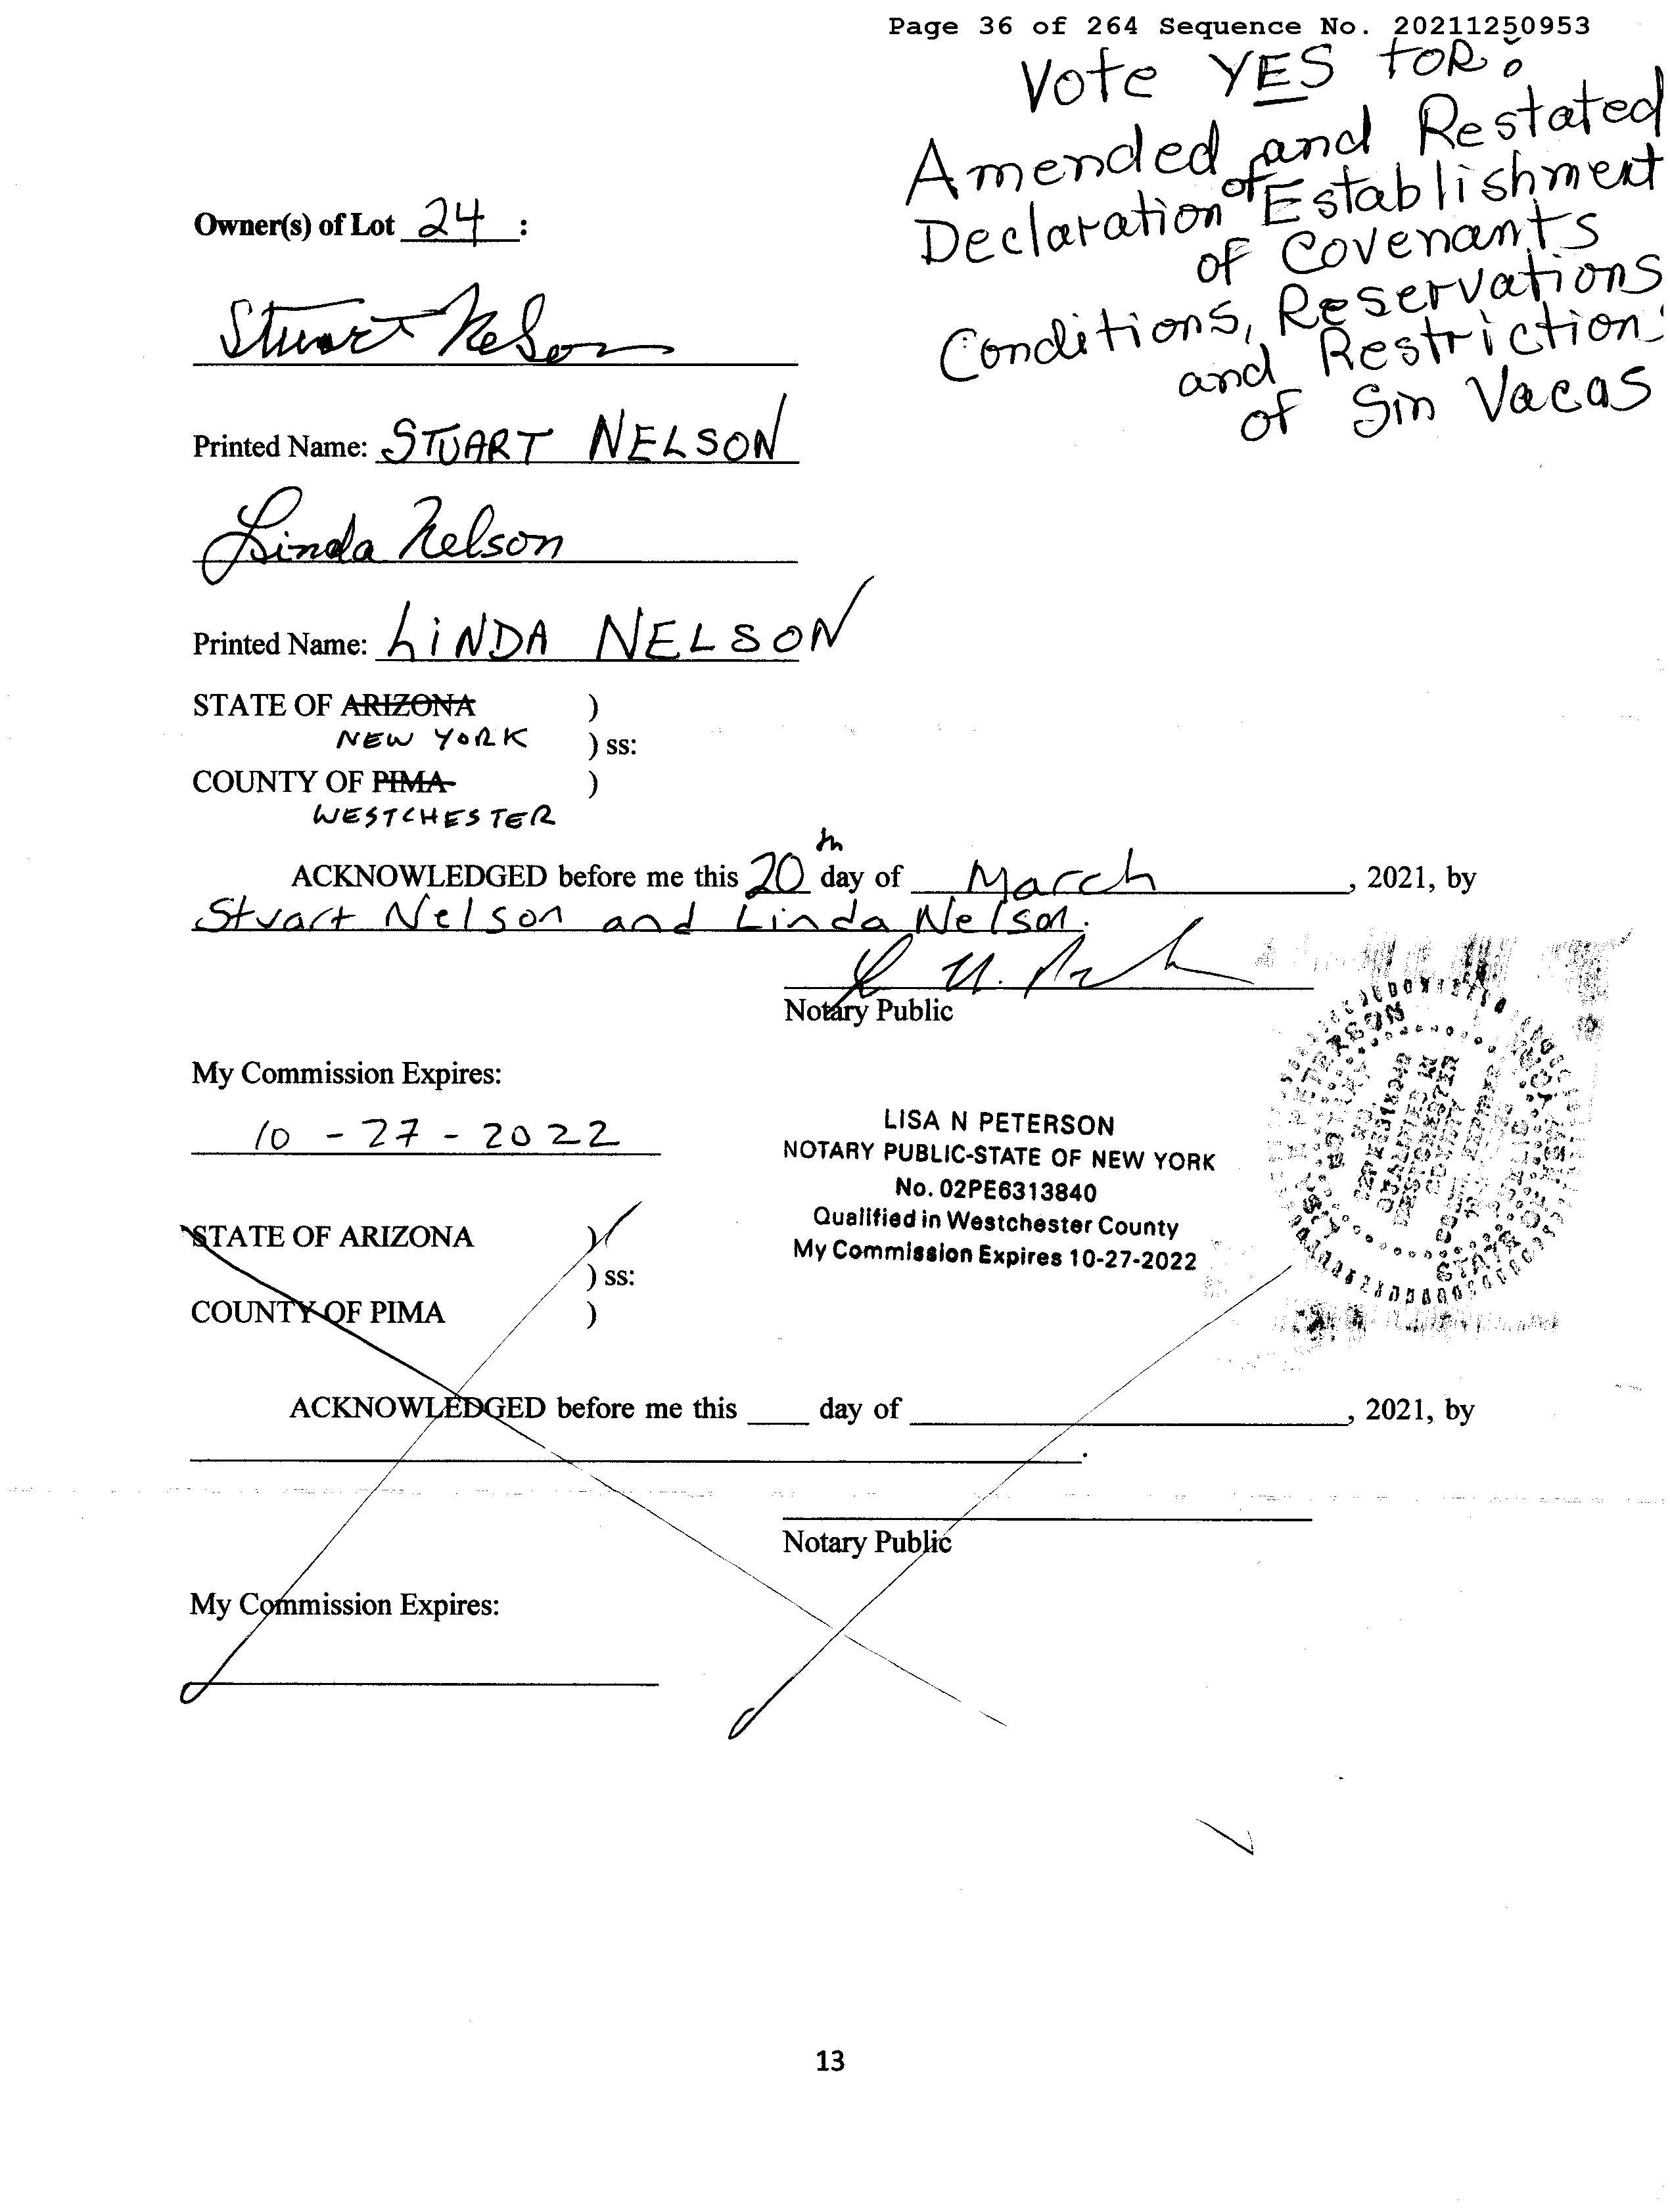 Page 36 of 264 Sequence No. 20211250953
Vote YES for:
Amended and Restated
Declaration of Establishment
of Covenants
Conditions, Reservations
and Restriction
of Sin Vacas
Owner(s) of Lot 24 :
Stuart Nelson
Printed Name: STUART NELSON
Linda Nelson
Printed Name: LINDA NELSON
STATE OF ARIZONA )
NEW YORK ) ss:
COUNTY OF PIMA )
WESTCHESTER
ACKNOWLEDGED before me this 20th day of March, 2021, by
Stuart Nelson and Linda Nelson.
Notary Public
My Commission Expires:
10 - 27 - 2022
LISA N PETERSON
NOTARY PUBLIC-STATE OF NEW YORK
No. 02PE6313840
Qualified in Westchester County
My Commission Expires 10-27-2022
STATE OF ARIZONA )
) ss:
COUNTY OF PIMA )
ACKNOWLEDGED before me this ____ day of ____, 2021, by
Notary Public
My Commission Expires:
13